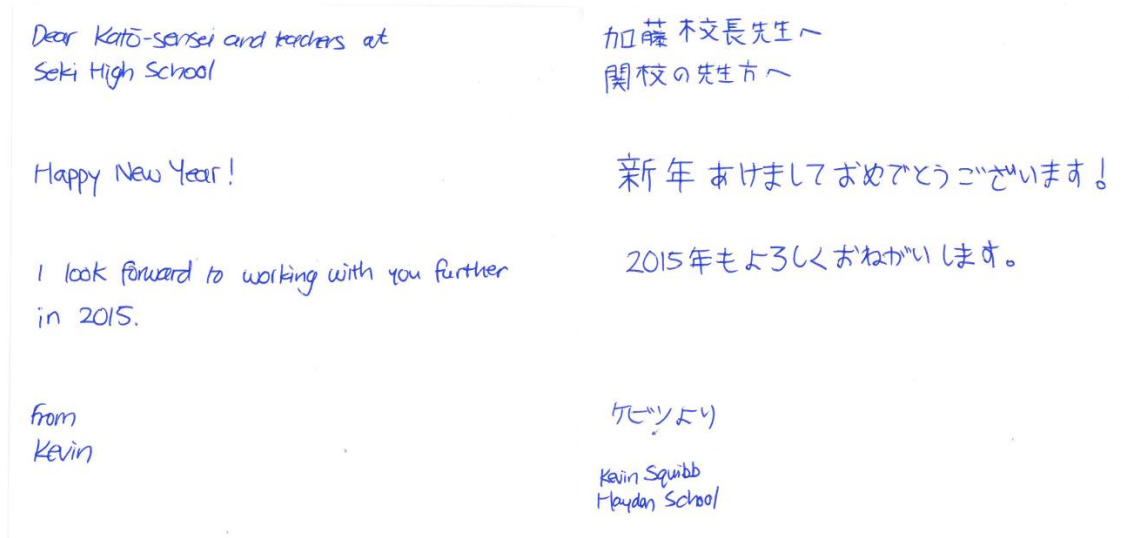 Dear Katō-sensei and teachers at
Seki High School
Happy New Year!
I look forward to working with you further
in 2015.
from
Kevin
加藤校長先生へ
関校の先生方へ
新年あけましておめでとうございます！
2015年もよろしくおねがいします。
ケビンより
Kevin Squibb
Haydon School